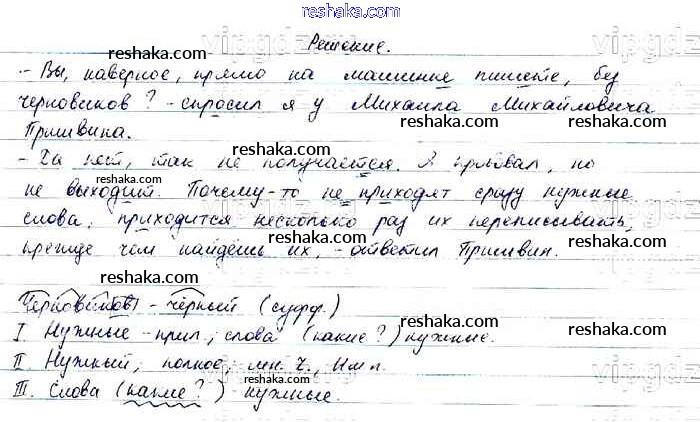 reshaka.com
Решение.
reshaka.com
- Вы, наверное, прямо на машинке пишете, без
черновиков? - спросил я у Михаила Михайловича
Пришвина.
- Да нет, так не получается. Я пробовал, но
не выходит. Почему-то не приходят сразу нужные
слова, приходится несколько раз их переписывать,
прежде чем найдёшь их, - ответил Пришвин.
Черновиков - чёрный (суфф.)
I. Нужные - прил., слова (какие?) нужные.
II. Нужный, полное, мн. ч., Им п.
III. Слова (какие?) нужные.
reshaka.com
reshaka.com
reshaka.com
reshaka.com
reshaka.com
reshaka.com
reshaka.com
reshaka.com
reshaka.com